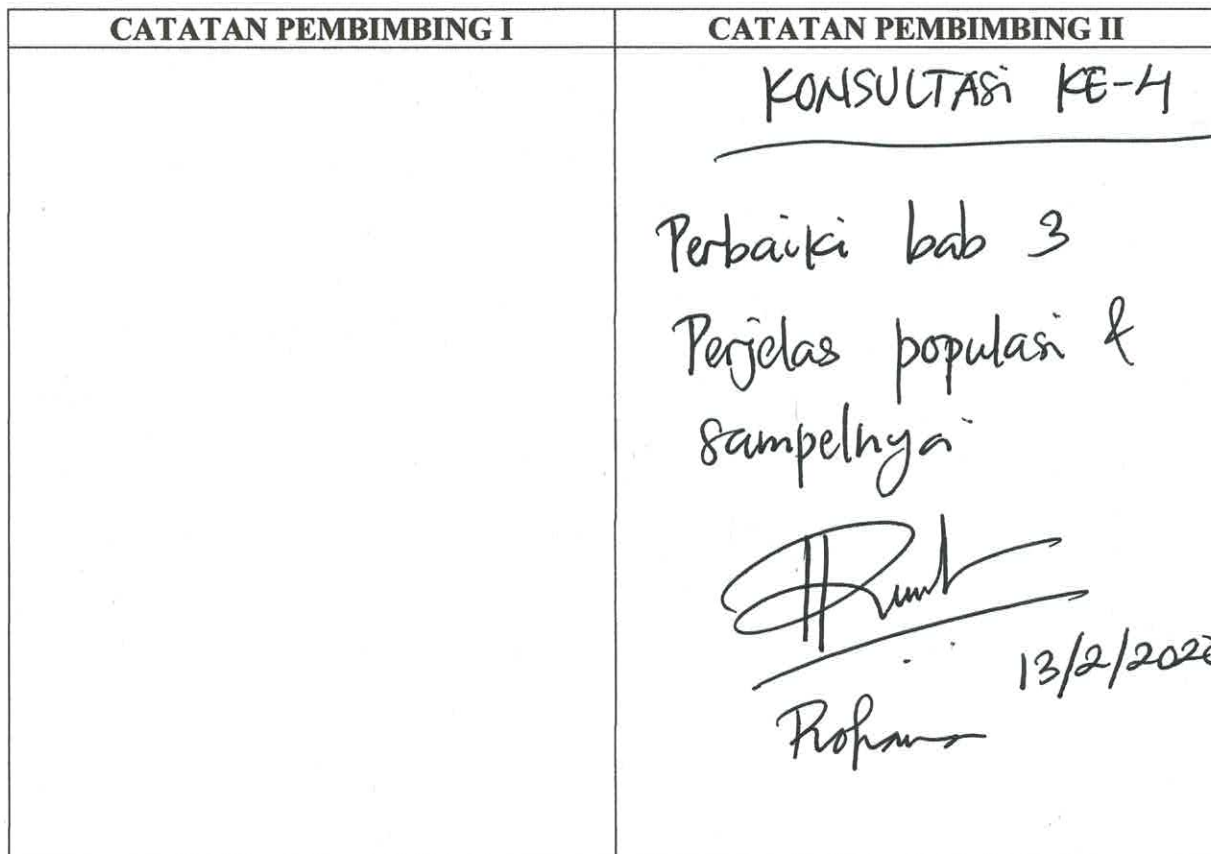 CATATAN PEMBIMBING I
CATATAN PEMBIMBING II
KONSULTASI KE-4
Perbaiki bab 3
Perjelas populasi &
sampelnya
13/2/202